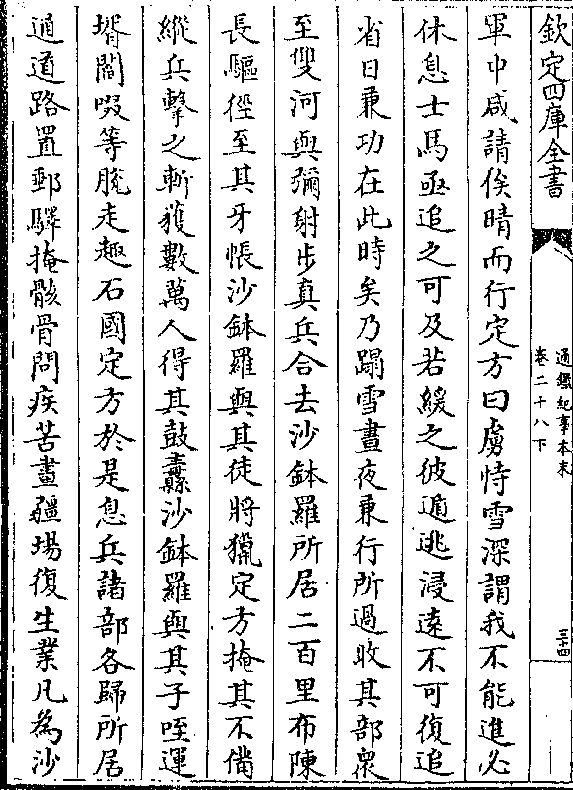 欽定四庫全書
通鑑紀事本末
卷二十八下
三四
軍中咸請俟晴而行定方曰虜恃雪深謂我不能進必
休息士馬亟追之可及若緩之彼遁逃浸遠不可復追
省日兼功在此時矣乃蹋雪晝夜兼行所過收其部衆
至雙河與彌射步真兵合去沙鉢羅所居二百里布陳
長驅徑至其牙帳沙鉢羅與其徒將獵定方掩其不備
縱兵擊之斬獲數萬人得其鼓纛沙鉢羅與其子咥運
壻閻啜等脫走趣石國定方於是息兵諸部各歸所居
通道路置郵驛掩骸骨問疾苦畫疆場復生業凡為沙